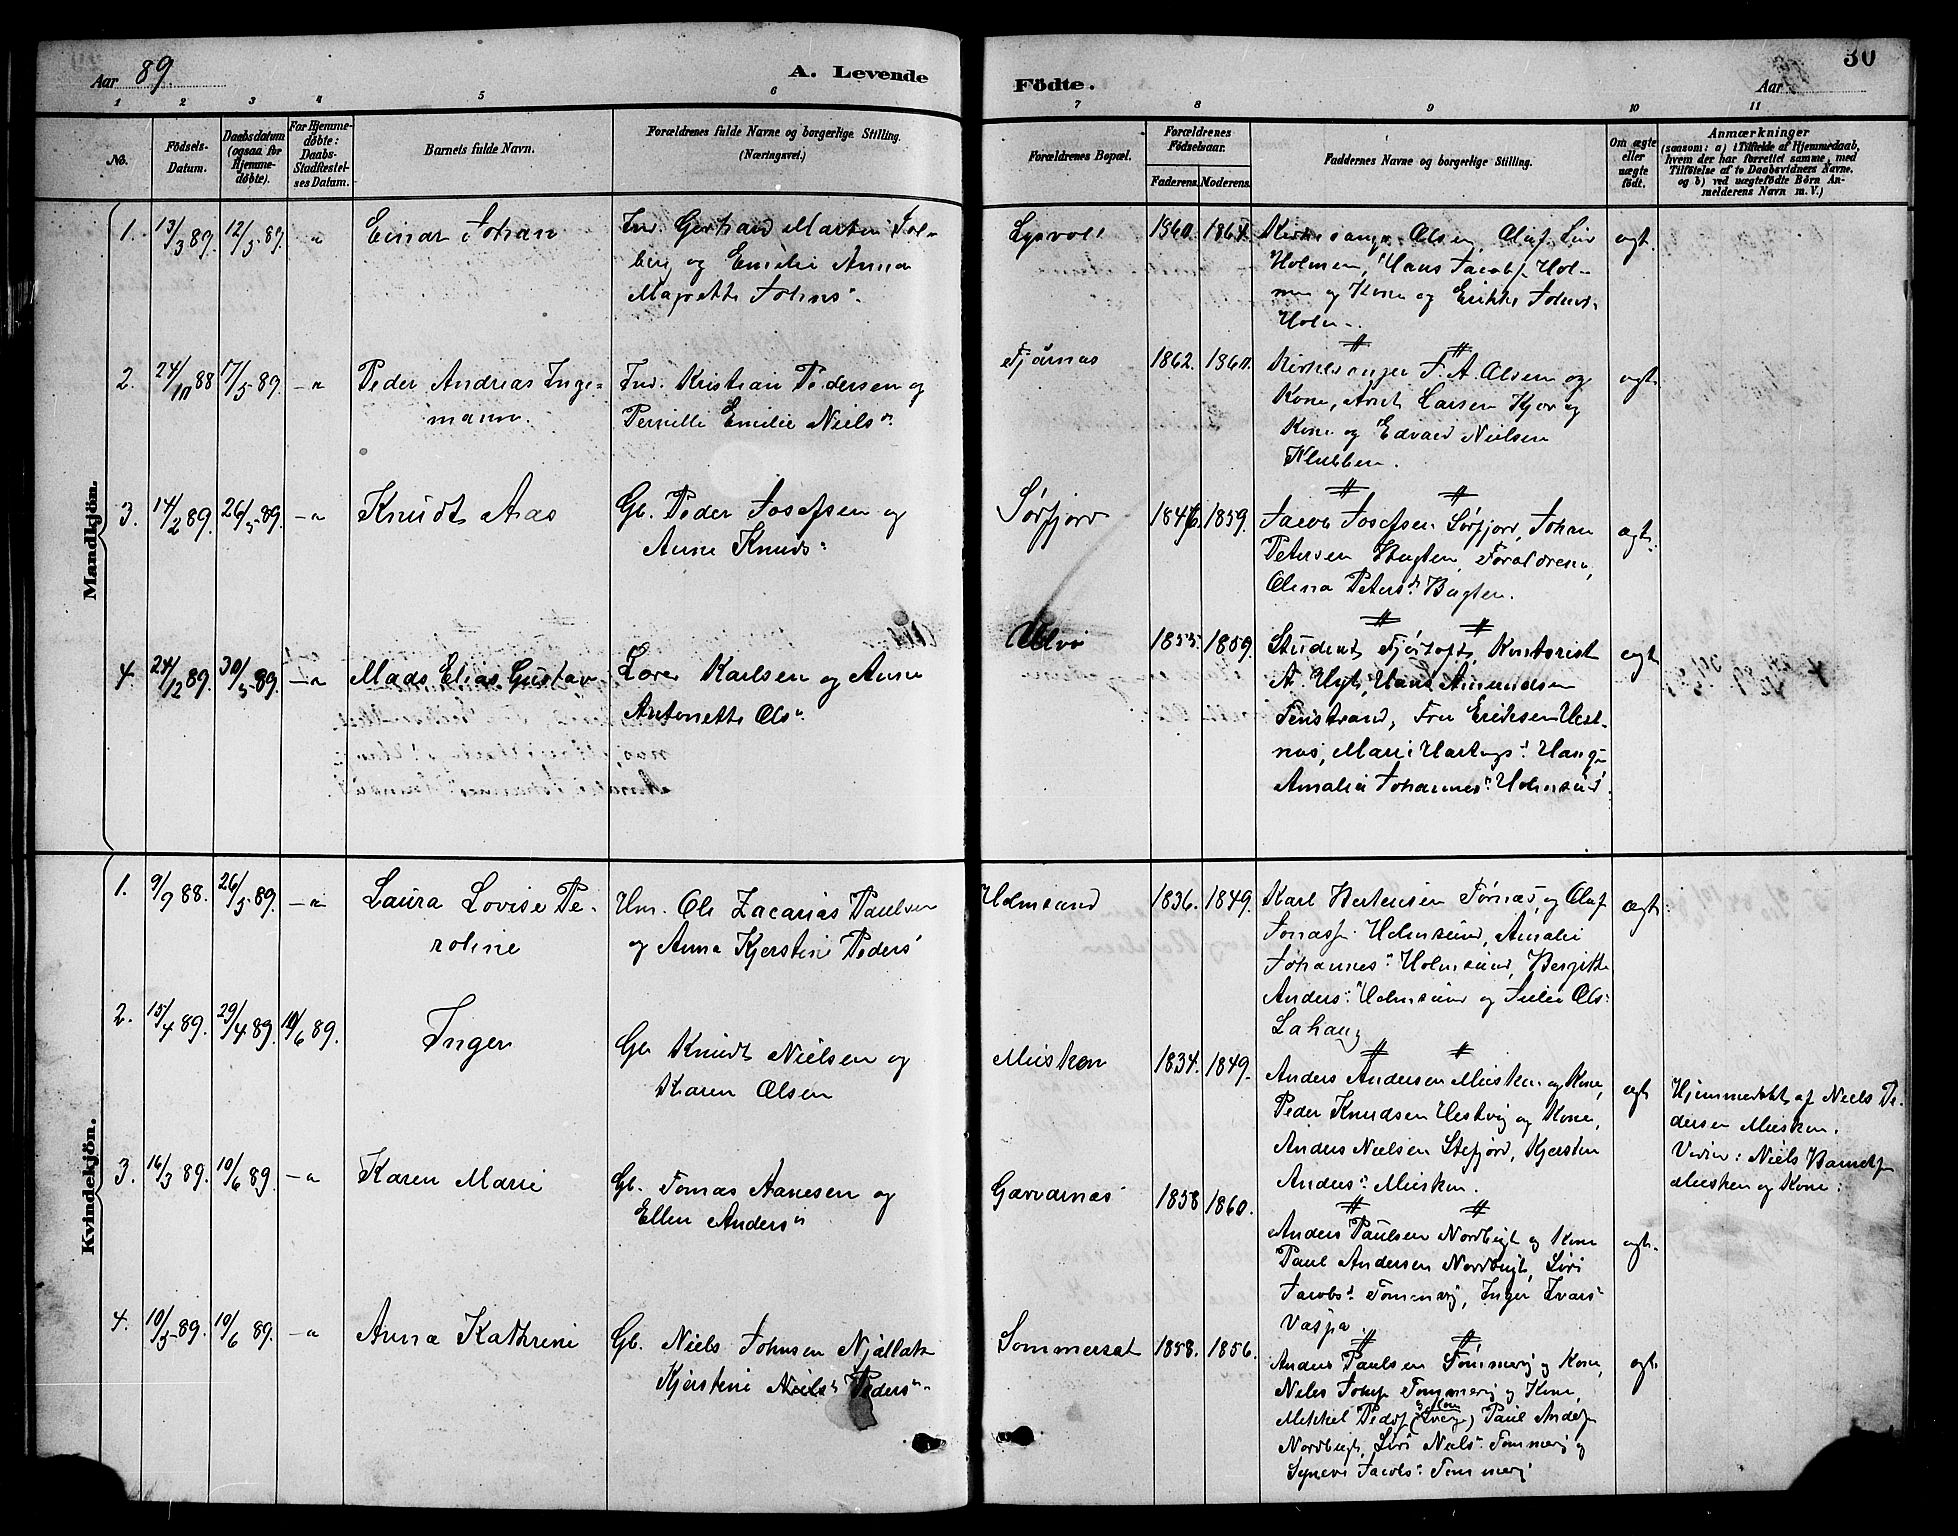 Aar 89.
A. Levende
Födte.
Aar
30
1 2 3 4 5 6
7 8 9 10 11
No.
Födsels-Datum.
Daabsdatum (ogsaa for Hjemme-døbte).
For Hjemme-døbte: Daabs-Stadfæstel-ses Datum.
Barnets fulde Navn.
Forældrenes fulde Navne og borgerlige Stilling.
(Næringsvei.)
Forældrenes Bopæl.
Forældrenes Födselsaar.
Faderens. Moderens.
Faddernes Navne og borgerlige Stilling.
Om ægte eller uægte født.
Anmærkninger
(saasom: a) i Tilfælde af Hjemmedaab,
hvem der har forrettet samme, med
Tilföielse af to Daabsvidners Navne,
og b) ved uægtefödte Börn An-
melderens Navn m. V.)
Mandkjön.
1. 13/3 89. 12/5 89. - " Einar Johan
Ind. Gerhard Martin Sol-
berg og Emelie Anna
Magrethe Johns
1860. 1864. Kirkesanger Olsen, Oluf
Holmen, Hans Jacobs. Hol-
men og Kone og Erikke Johns.
Holm.
ægte.
2. 24/10 88 17/5 89. - " Peder Andreas Inge-
mann.
Ind. Kristian Pedersen og
Pernille Emilie Niels
Fjærnæs 1862. 1860. Kirkesanger J. A. Olsen og
Kone, Arnt Larsen Kjær og
Kone og Edvard Nielsen
Klubben.
ægte
3. 14/2 89. 26/5 89. - " Knudt Aas
Gb. Peder Josefsen og
Anne Knuds
Sørfjord 1846. 1859. Jacob Josefsen Sørfjord, Johan
Petersen Bugten, Forældrene,
Olina Peters Bugten.
ægte.
4 24/12 89. 30/5 89. - " Mads Elias Gustav
Lars Karlsen og Anne
Antonette Ols
Ulvø 1855. 1859. Student Fjørtoft, Kontorist
A. , Hans Amundsen
Finstrand, Fru Eriksen Vest-
næs, Marie
Amalia Johannes Holmsund.
ægte
Kvindekjön.
1. 9/9 88. 26/5 89. - " Laura Lovise Pe-
roline
Hm. Ole Zacarias Paulsen
og Anna Kjerstine Peders
Holmsund 1836. 1849. Karl Bertensen Tørnæs, og Oluf
Jonass. Holmsund, Amalie
Johannes Holmsund, Bergitte
Anders Holmsund og Julie Ols
ægte
2. 15/4 89. 29/4 89. 10/6 89. Inger
Gb. Knudt Nielsen og
Karen Olsen
Musken 1834. 1849. Anders Andersen Musken og Kone,
Peder Knudsen Vestvig og Kone,
Anders Nielsen Stefjord, Kjersten
Anders Musken.
ægte
Hjemmedøbt af Niels Pe-
dersen Musken.
Vidner: Niels
Musken og Kone.
3. 16/3 89. 10/6 89. - " Karen Marie
Gb. Tomas Aanesen og
Ellen Anders
1858 1860. Anders Paulsen Nordbugt og Kone
Paul Andersen Nordbugt, Siri
Jacobs Tommervig, Inger Ivars
Vaspa.
ægte.
4. 10/5 89. 10/6 89. - " Anna Kathrine
Gb. Niels Johnsen Njallak
Kjerstine Niels Peders
Sommersæt 1858. 1856. Anders Paulsen Tømmervig og Kone,
Nils Tommervig og Kone,
Mikkel Peders. og Kone Paul Anders.
Nordbugt, Siri Niels Tommervig og
Synevi Jacobs Tommervig
ægte